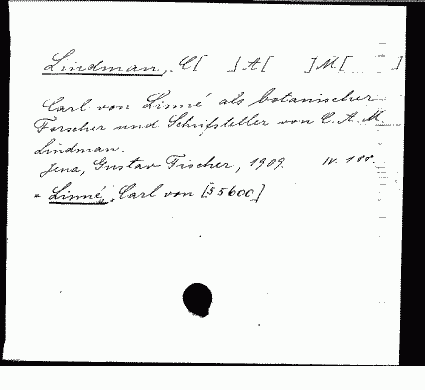 Lindman, C[ ] A[ ] M[ ]
Carl von Linné als botanischer
Forscher und Schrifsteller von C. A. M.
Lindman.
Jena, Gustav Fischer, 1909. IV. 188.
* Linné, Carl von [§5600]